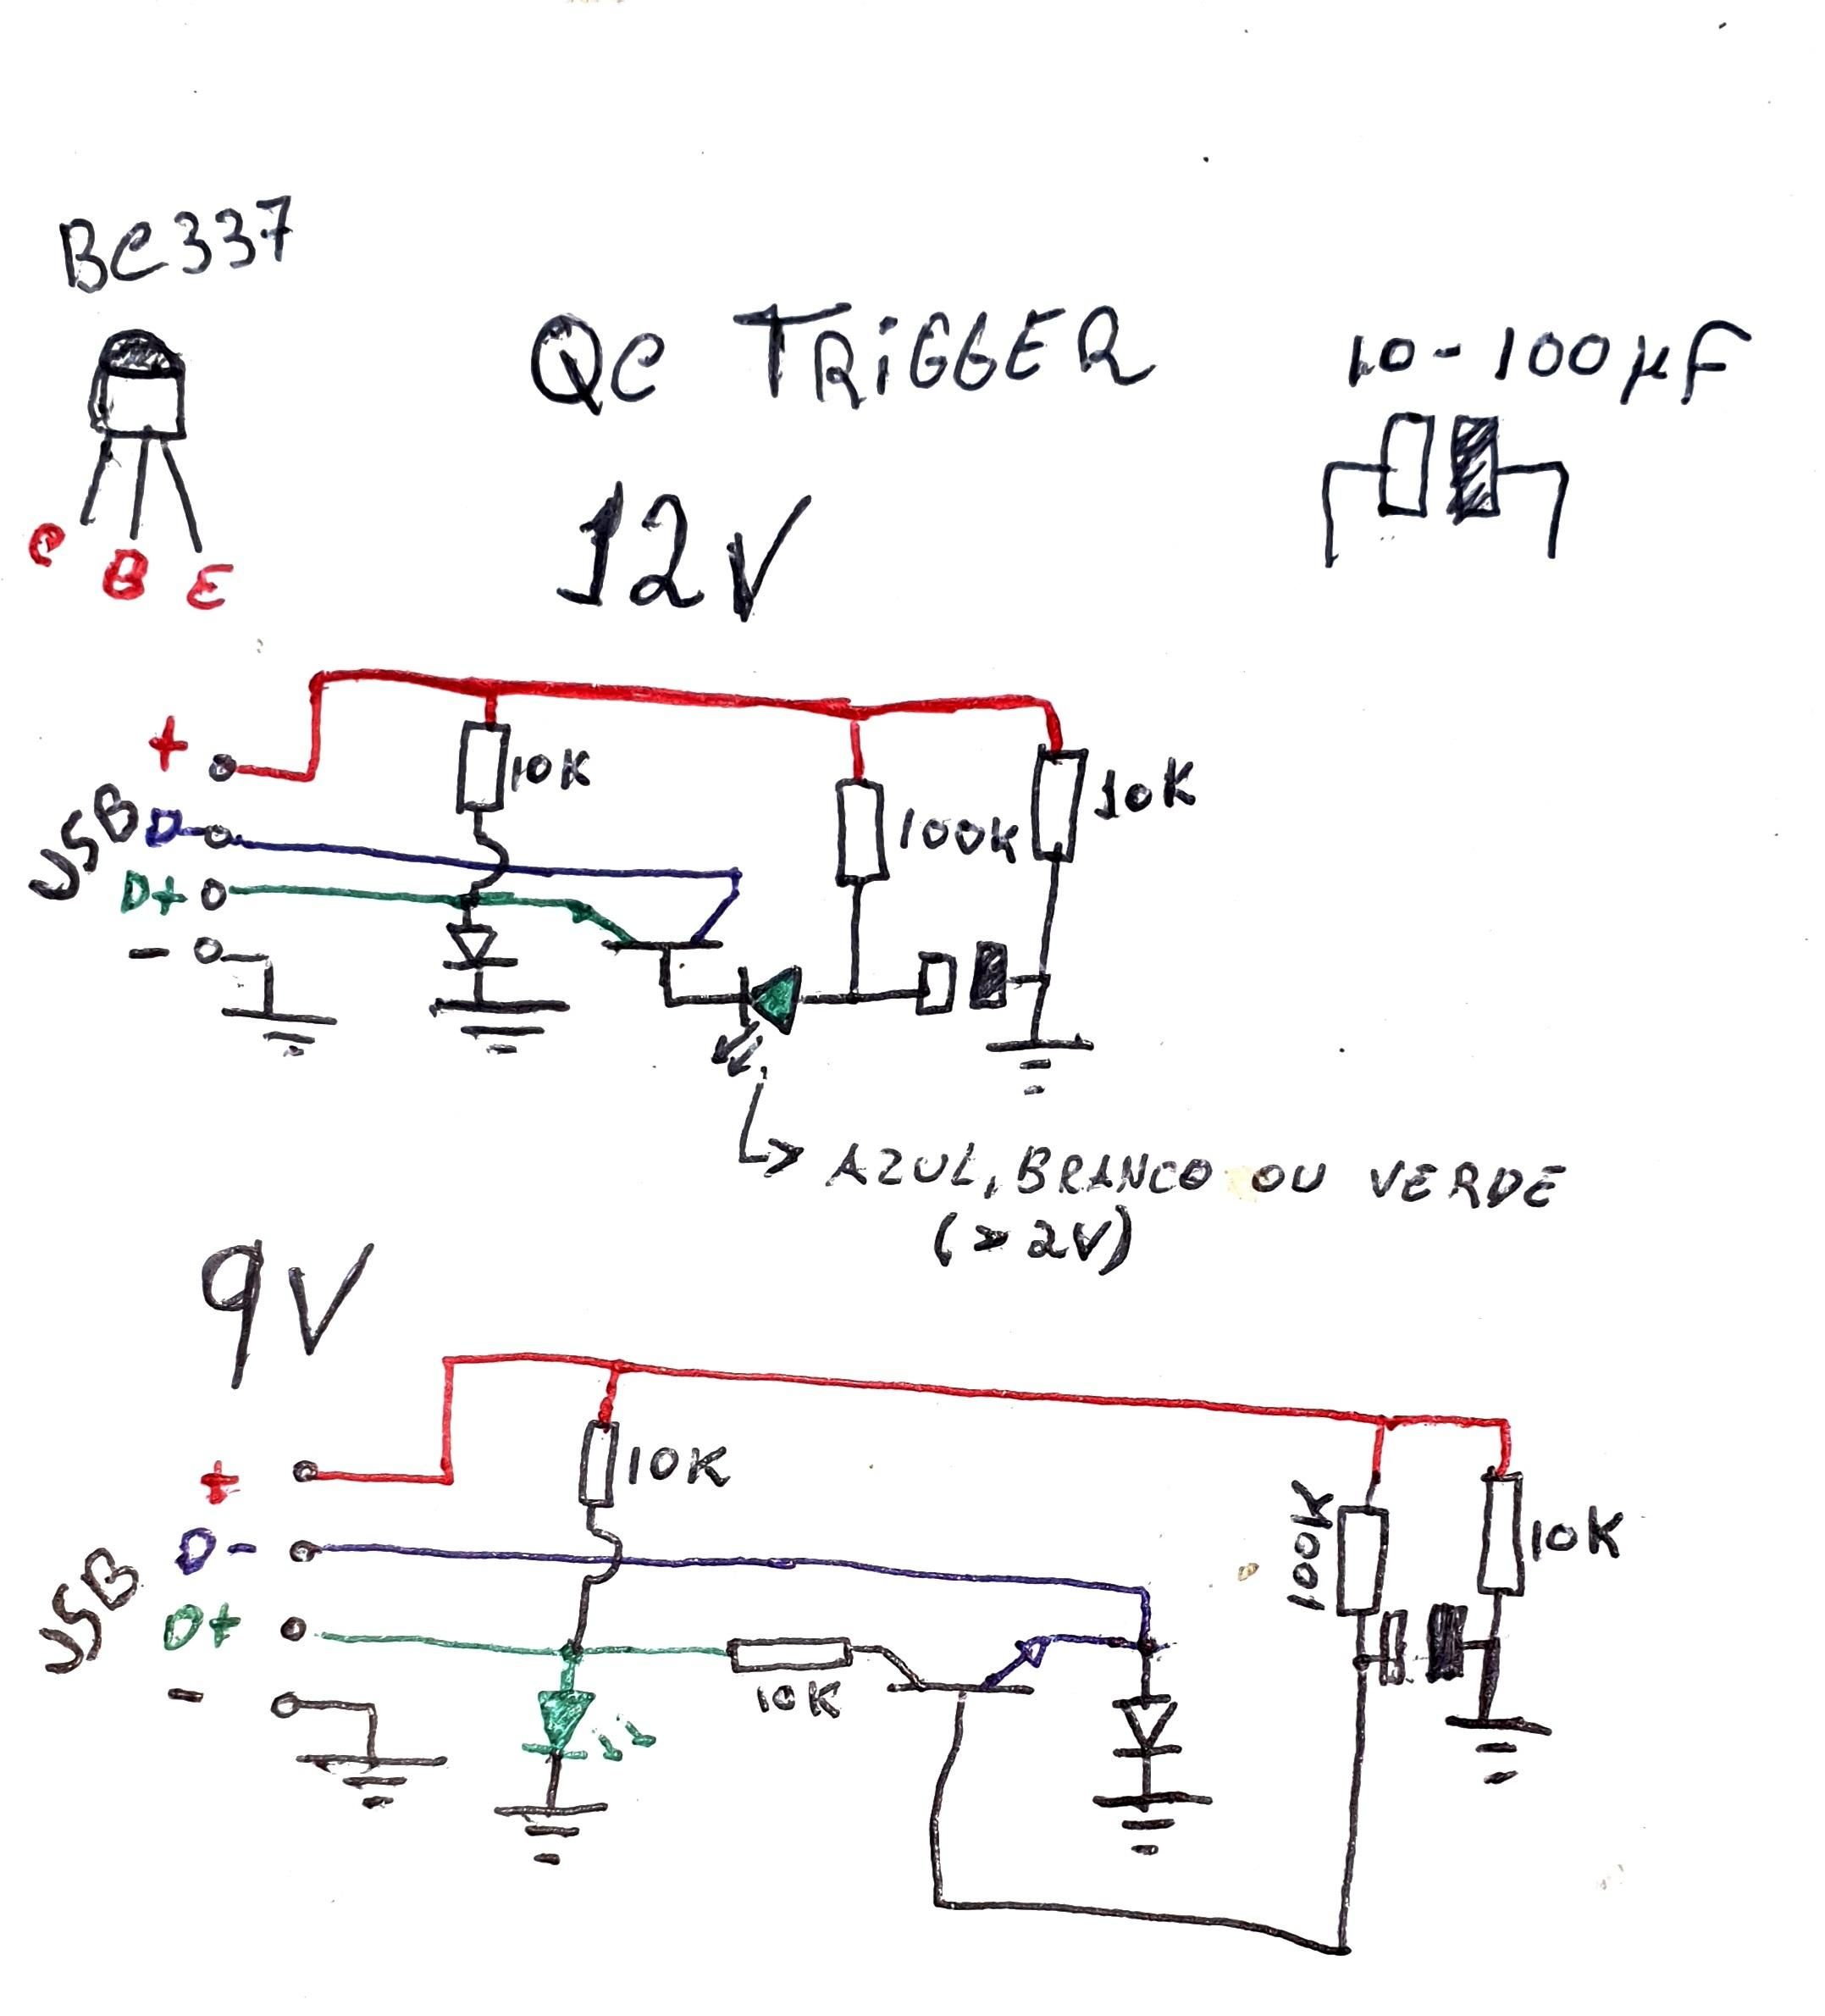 BC337
QC TRiGGER
10-100µF
12V
C
B
E
+
10K
10K
USB
D-
100K
D+
-
AZUL, BRANCO OU VERDE
(>2V)
9V
+
10K
100K
10K
USB
D-
D+
10K
-